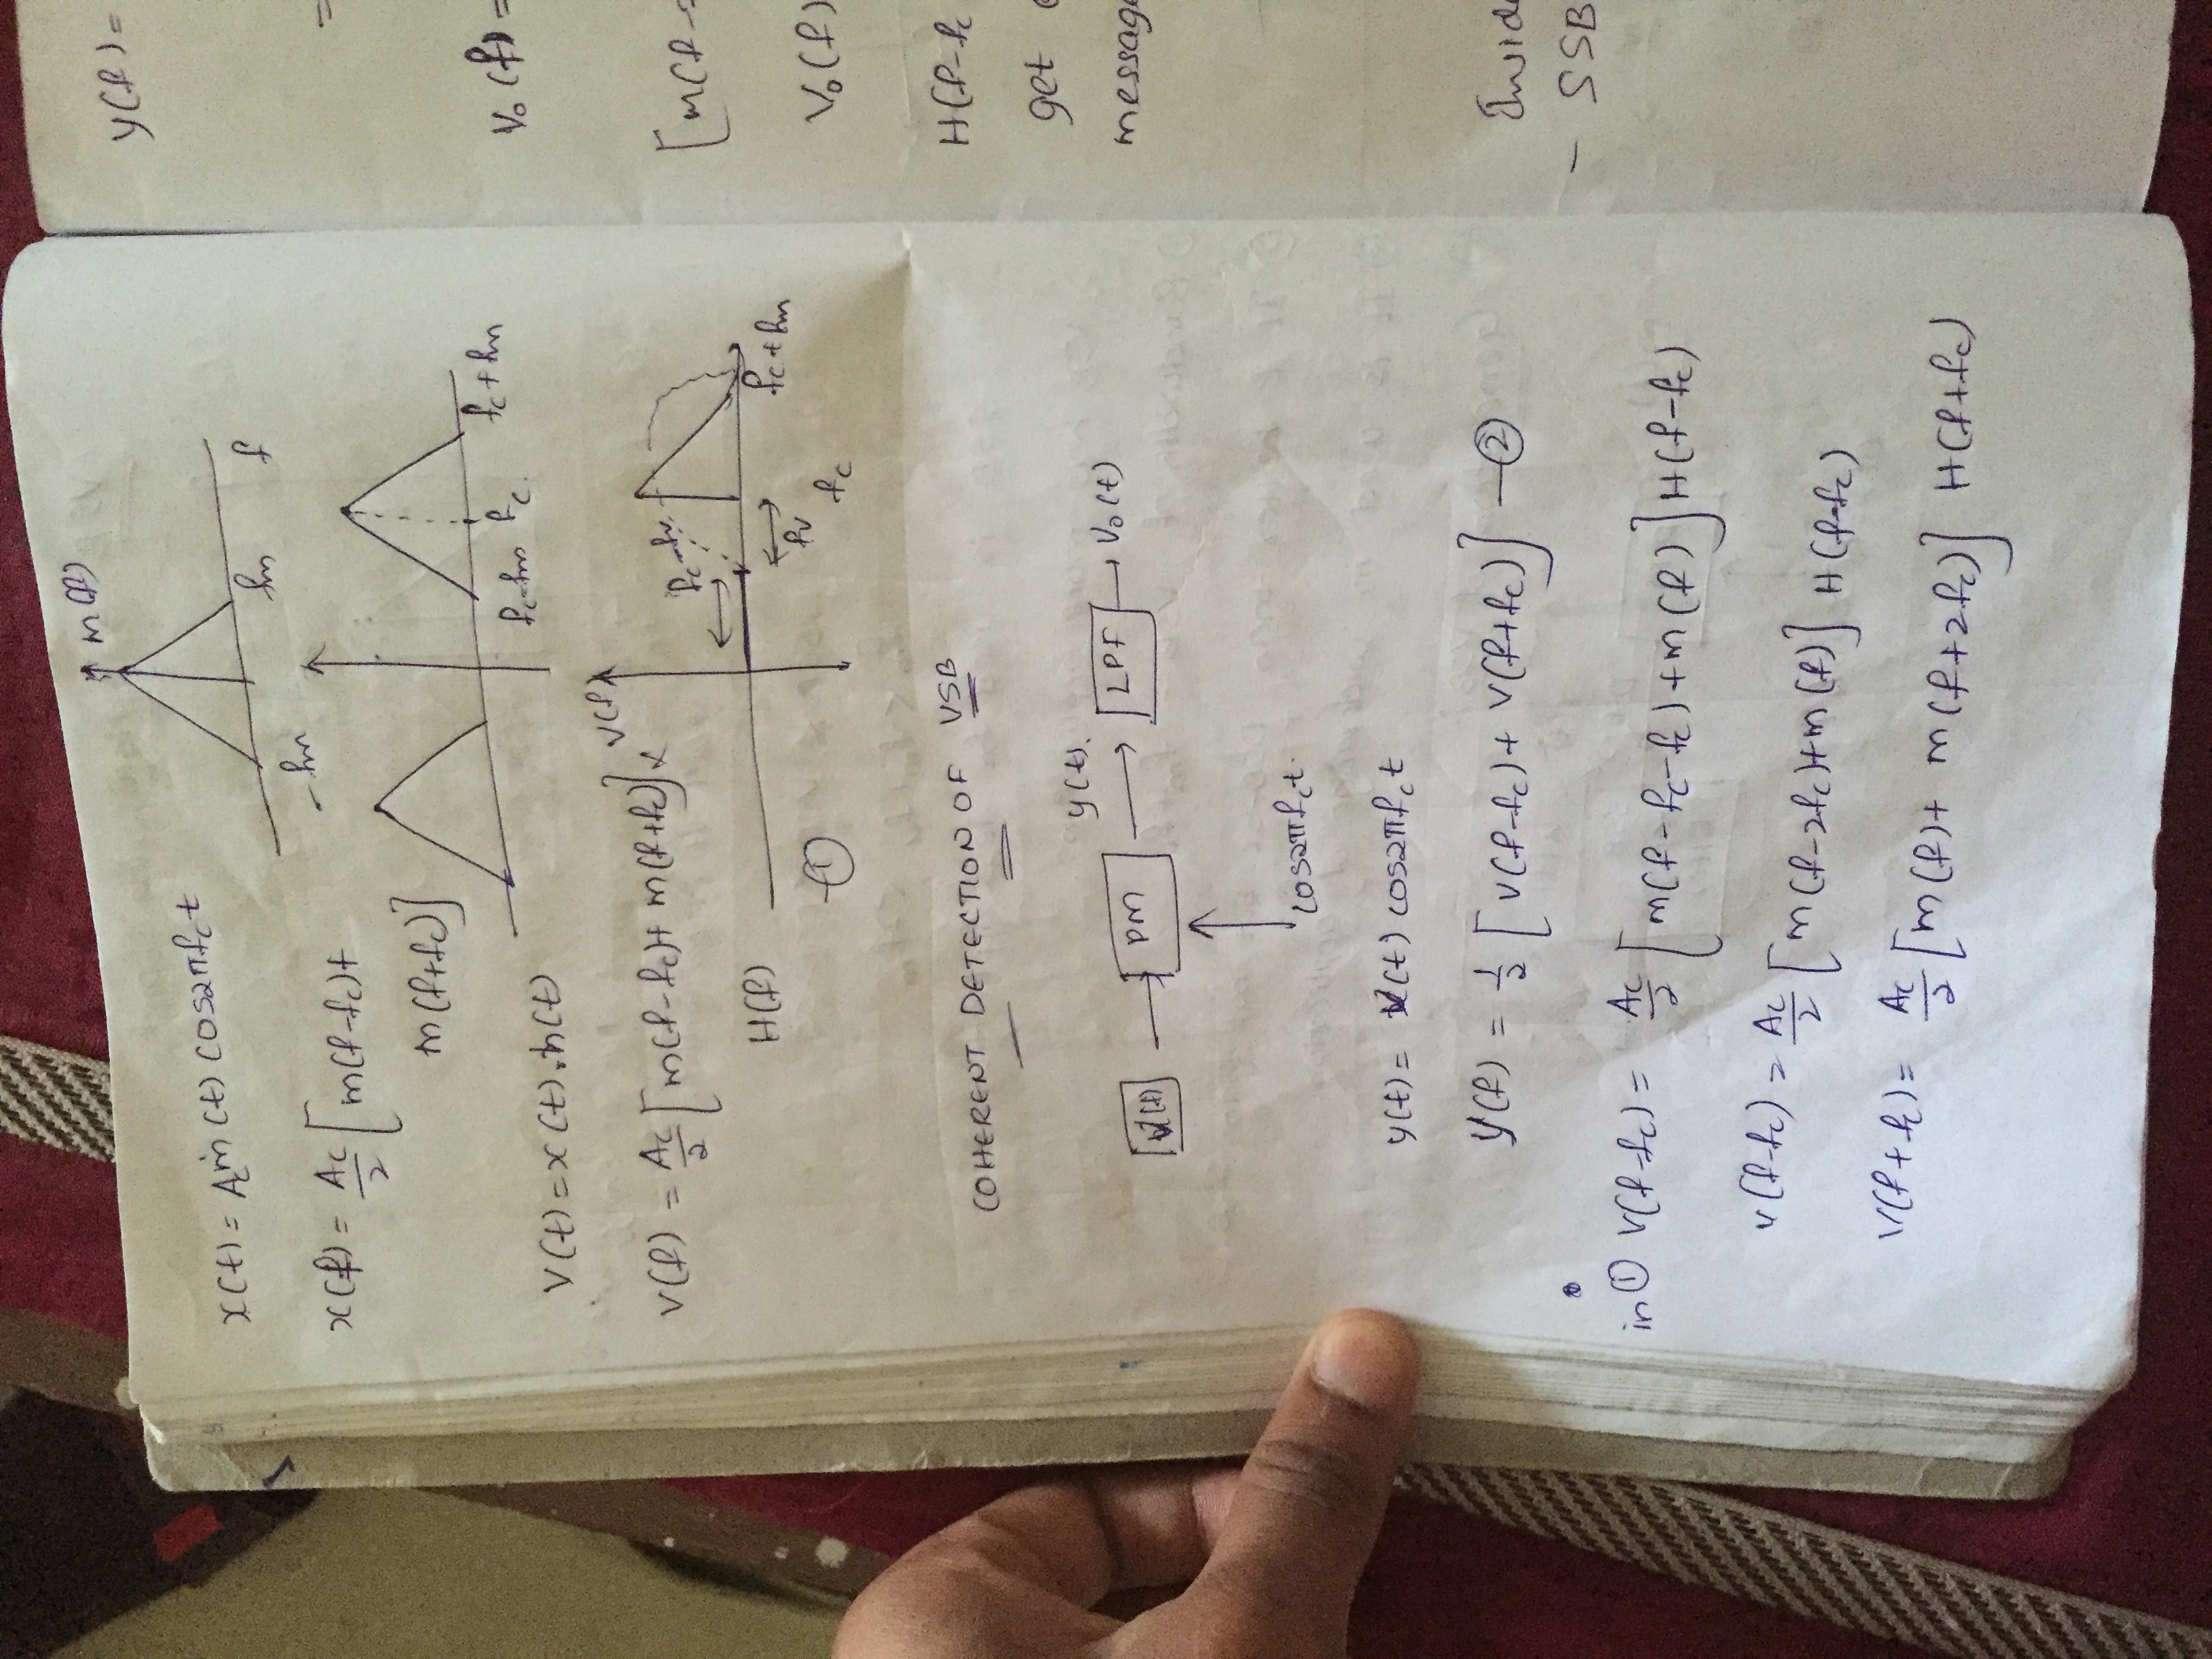 m(f)
x(t) = Ac m(t) cos2πfct
-fm fm f
x(f) = Ac/2 [m(f-fc)+
m(f+fc)]
fc-fm fc fc+fm
V(t) = x(t).h(t)
V(f) = Ac/2 [m(f-fc)+ m(f+fc)] x
H(f)
—①
V(f)
fc-fv
fv fc+fm
fc
COHERENT DETECTION OF VSB
y(t).
V(t) PM LPF V₀(t)
cos2πfct.
y(t) = V(t) cos2πfct
y(f) = 1/2 [V(f-fc)+ V(f+fc)] —②
in ① V(f-fc) = Ac/2 [m(f-fc-fc)+m(f)] H(f-fc)
V(f-fc) = Ac/2 [m(f-2fc)+m(f)] H(f-fc)
V(f+fc) = Ac/2 [m(f)+ m(f+2fc)] H(f+fc)
y(f) =
=
V₀(f) =
[m(f-2
V₀(f)
H(f-fc
get
message
- SSB